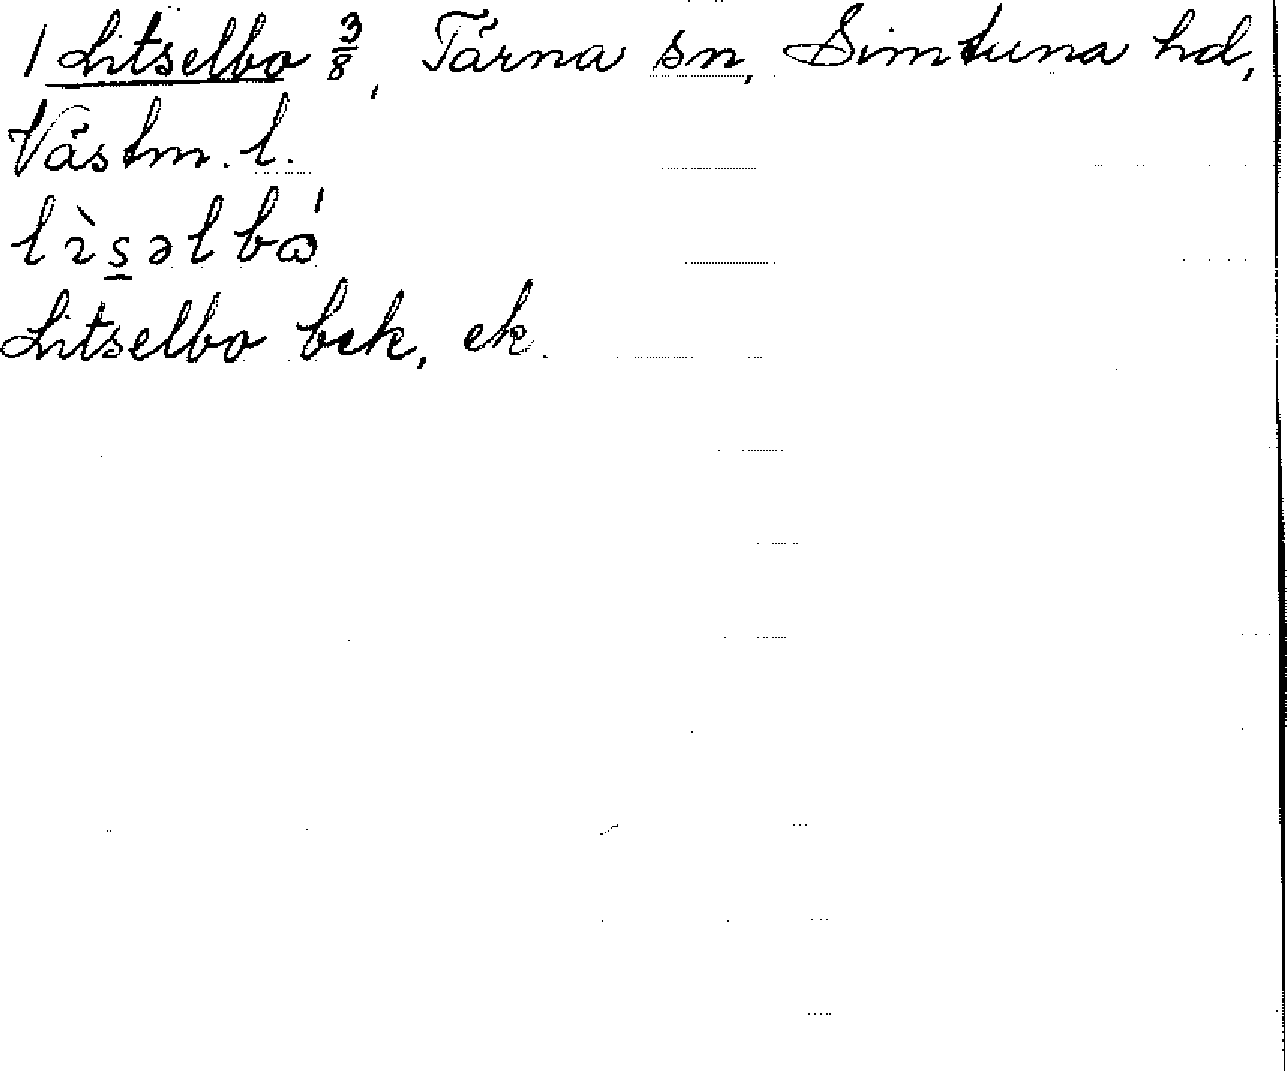 1 Litselbo 3/8, Tärna sn, Simtuna hd,
Västm. l.
lìs̱əlbɷ́
Litselbo bek, ek.